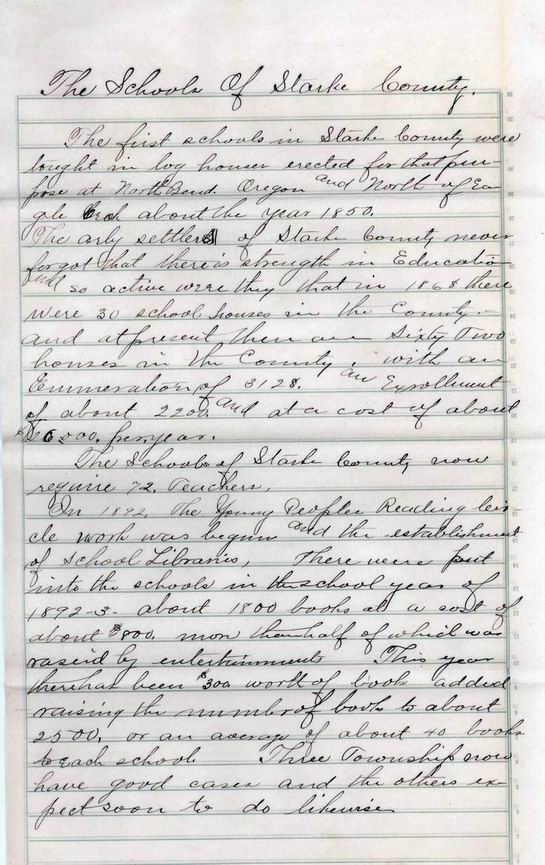 The Schools Of Starke County.
The first schools in Starke County were
tought in log houses erected for that pur-
pose at North Bend. Oregon and North of Ea-
gle about the year 1850.
The arly settlers of Starke County never
forgot that there is strength in Education
and so active were they that in 1868 there
were 30 school houses in the County.-
and at present there are Sixty Two
houses in the County, with an
Enumeration of 3128. an Enrollment
of about 2200. and at a cost of about
per year.
The Schools of Starke County now
require 72. Teachers.
In 1892. The Young Peoples Reading Cir-
cle work was begun and the establishment
of School Libraries, There were put
into the schools in the school year of
1892-3- about 1800 books at a cost of
about $800. more than half of which was
rased by entertainments This year
there has been $300 worth of books added
raising the number of books to about
2500, or an average of about 40 books
to each school. Three Township now
have good cases and the others ex-
pect soon to do likewise